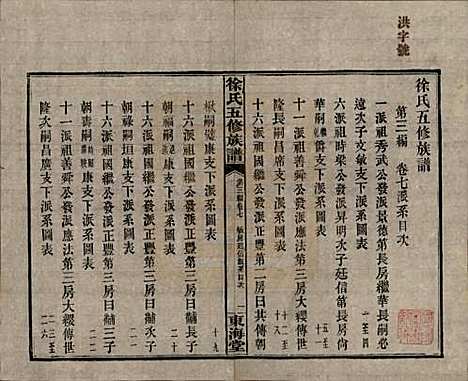 洪字號
徐氏五修族譜
第三編 卷七派系目次
一派祖秀武公發派景德第長房繼華長嗣必
遠次子文敏支下派系圖表 一至四
六派祖時榮公發派昇明次子廷信第長房尙
華嗣 支下派系圖表 五至十一
十六派祖國繼公發派正豐第一房曰其傳朝
隆長嗣昌席支下派系圖表 十二至十八
十一派祖善舜公發派應法第二房大纓傳世
楸嗣 康支下派系圖表 十九
十六派祖國繼公發派正豐第三房曰輔三子
朝福嗣 支下派系圖表
十六派祖國繼公發派正豐第三房曰輔次子
朝祿嗣垣康支下派系圖表
十六派祖國繼公發派正豐第三房曰輔長子
朝壽嗣 康支下派系圖表
十一派祖善舜公發派應法第三房大纓傳世
隆次嗣昌廣支下派系圖表 二三至二六
徐氏五修族譜
第三編卷七
二
東海堂